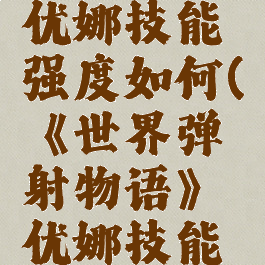 优娜技能
强度如何(
《世界弹
射物语》
优娜技能